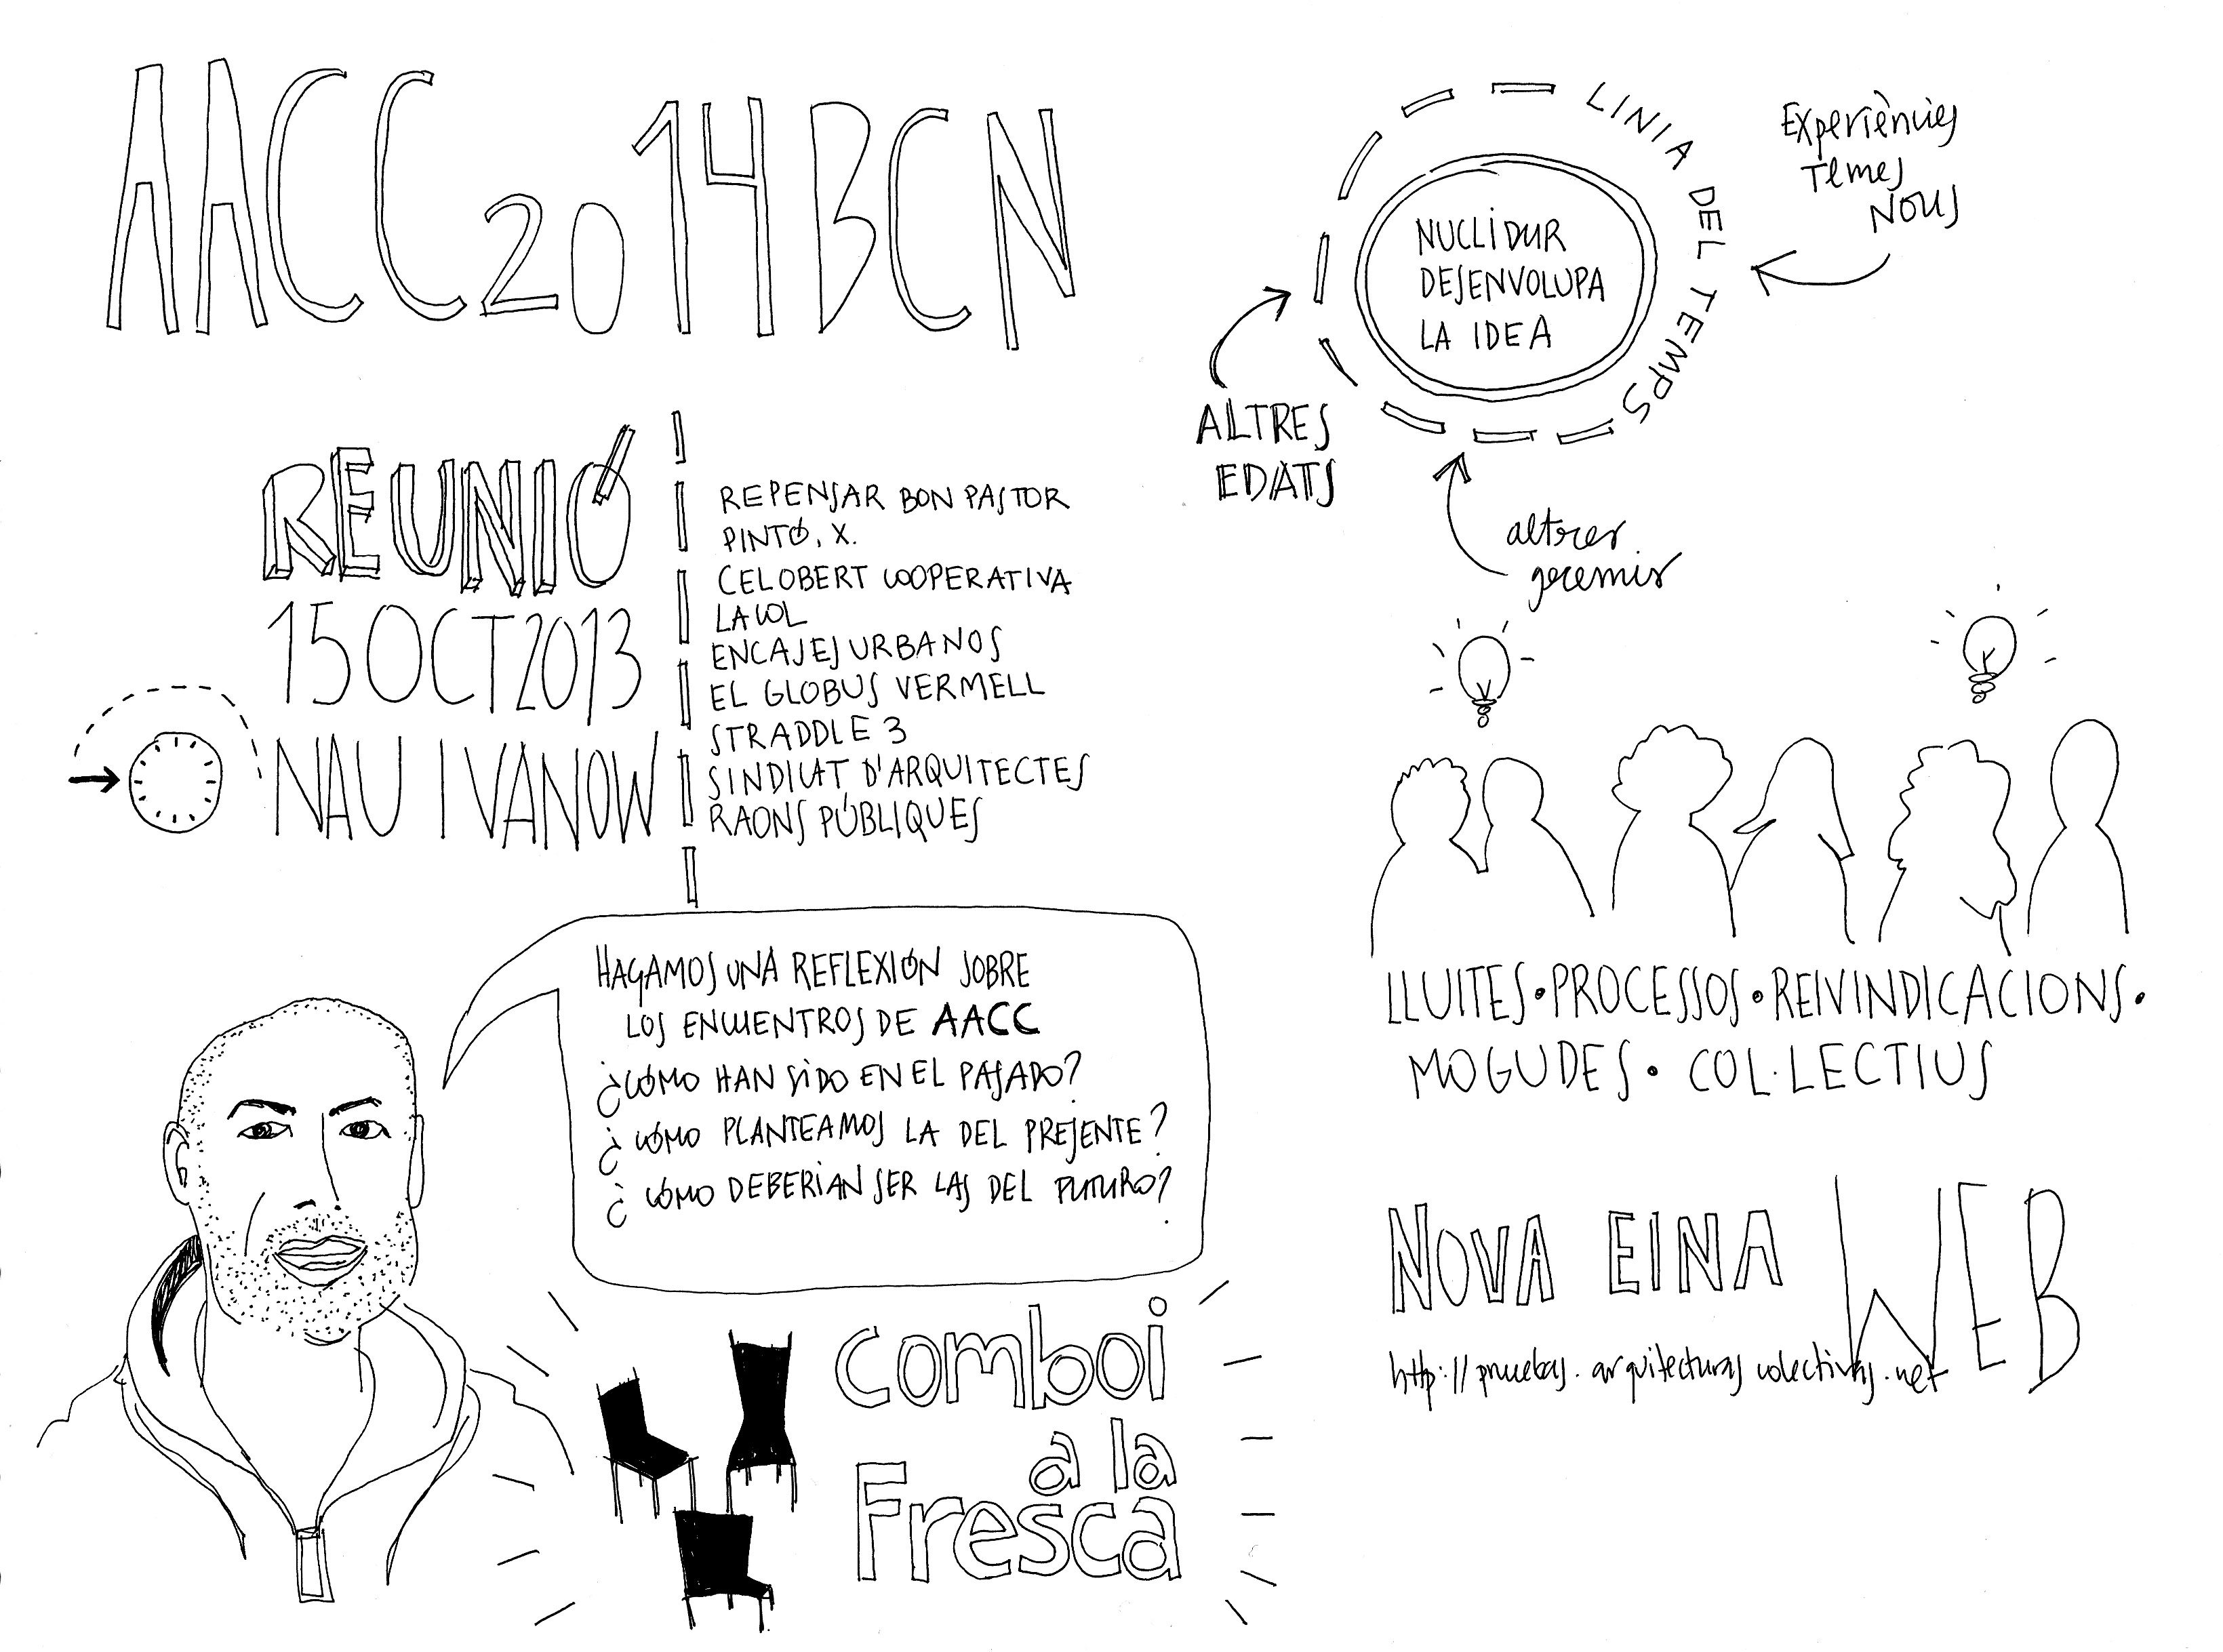 AACC2014BCN
REUNIÓ
15 OCT 2013
NAU IVANOW
REPENSAR BON PASTOR
PINTÓ, X.
CELOBERT COOPERATIVA
LACOL
ENCAJES URBANOS
EL GLOBUS VERMELL
STRADDLE 3
SINDICAT D'ARQUITECTES
RAONS PÚBLIQUES
HAGAMOS UNA REFLEXIÓN SOBRE
LOS ENCUENTROS DE AACC
¿CÓMO HAN SIDO EN EL PASADO?
¿CÓMO PLANTEAMOS LA DEL PRESENTE?
¿CÓMO DEBERIAN SER LAS DEL FUTURO?
comboi
a la
Fresca
LINIA DEL TEMPS
Experiències
Temes
NOUS
NUCLI DUR
DESENVOLUPA
LA IDEA
ALTRES
EDATS
altres
gremis
LLUITES • PROCESSOS • REIVINDICACIONS •
MOGUDES • COL·LECTIUS
NOVA EINA WEB
http://pruebas.arquitecturascolectivas.net